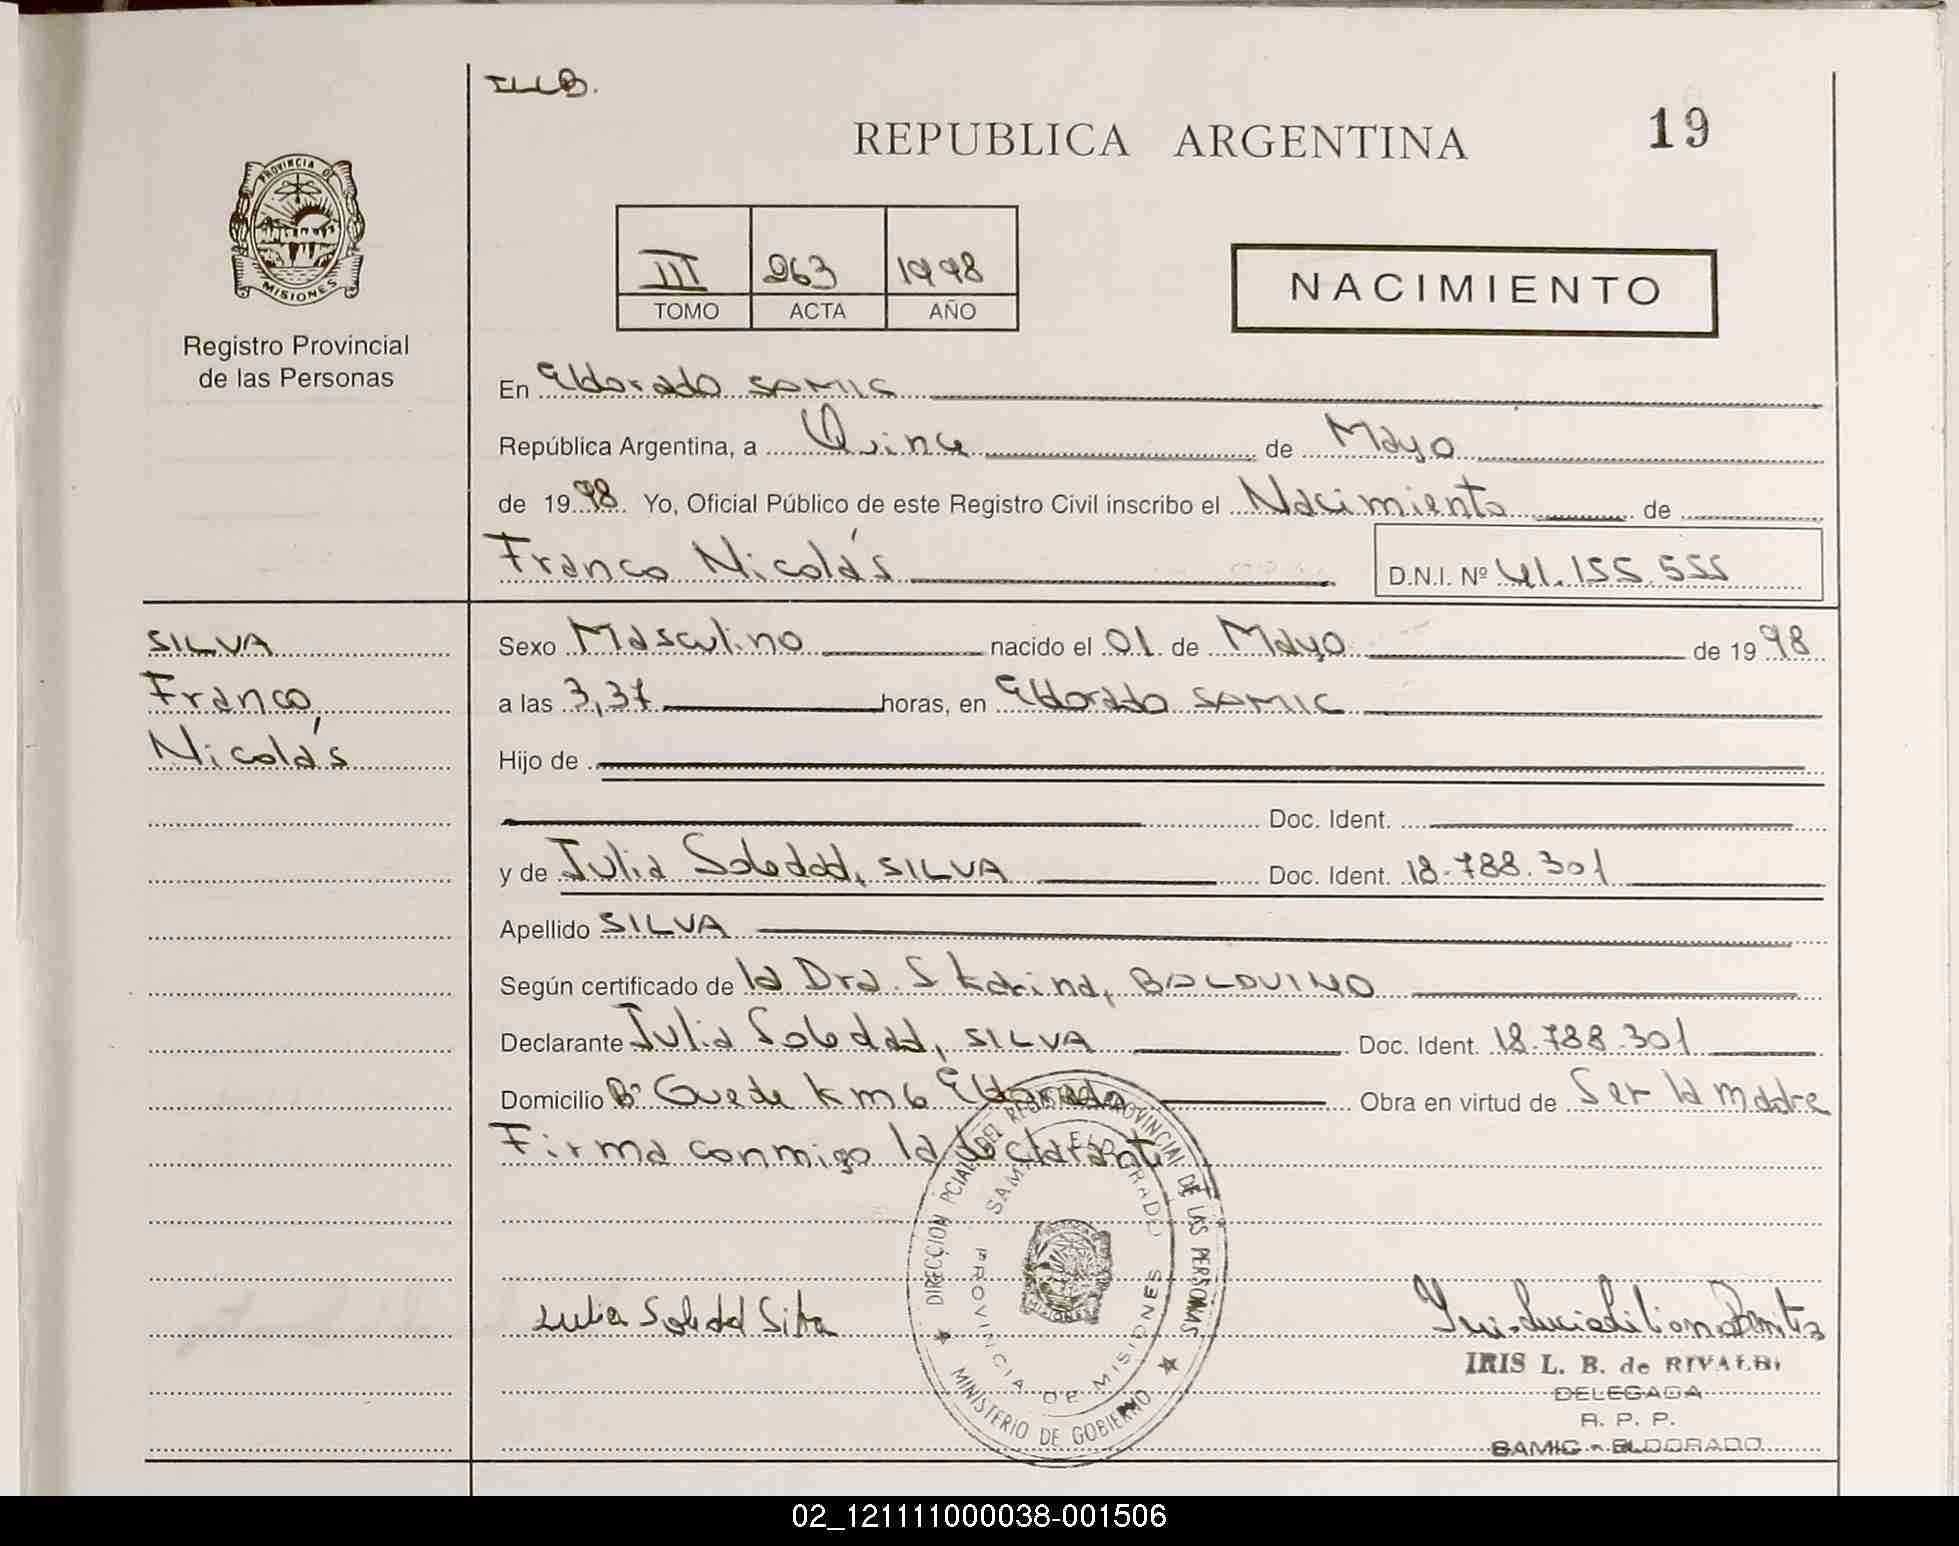 ILLB.
REPUBLICA ARGENTINA
19
PROVINCIA DE
MISIONES
Registro Provincial
de las Personas
III 263 1998
TOMO ACTA AÑO
NACIMIENTO
En Eldorado SAMIC
República Argentina, a Quince de Mayo
de 1998. Yo, Oficial Público de este Registro Civil inscribo el Nacimiento de
Franco Nicolás D.N.I. Nº 41.155.555
SILVA
Franco
Nicolás
Sexo Masculino nacido el 01 de Mayo de 1998
a las 3,37 horas, en Eldorado SAMIC
Hijo de
Doc. Ident.
y de Julia Soledad, SILVA Doc. Ident. 18.788.301
Apellido SILVA
Según certificado de la Dra. S Karina, BALDUINO
Declarante Julia Soledad, SILVA Doc. Ident. 18.788.301
Domicilio Bº Guede Km 6 Eldorado Obra en virtud de Ser la madre
Firma conmigo la declarante
DIRECCION PCIAL. DEL REGISTRO PROVINCIAL DE LAS PERSONAS
SAMIC ELDORADO
PROVINCIA DE MISIONES
MINISTERIO DE GOBIERNO
Julia Soledad Silva
IRIS L. B. de RIVALDI
DELEGADA
R. P. P.
SAMIC - ELDORADO
02_121111000038-001506